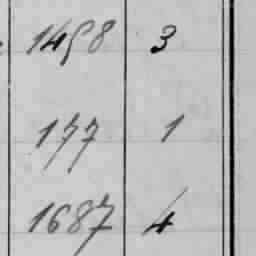 1458 3
177 1
1687 4